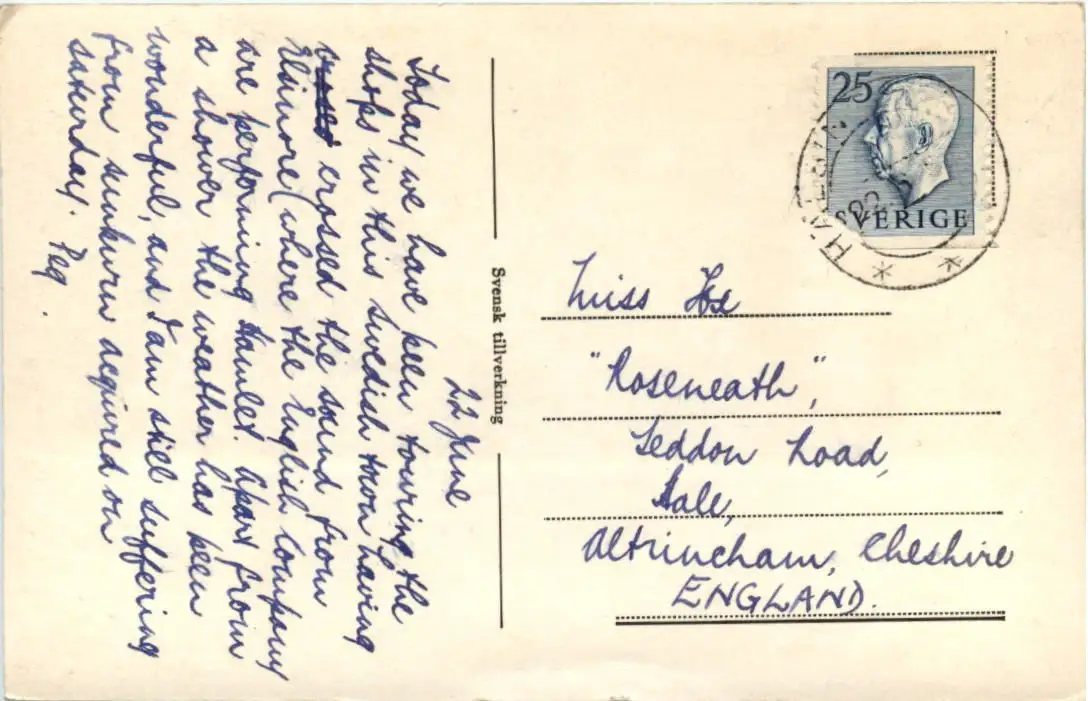 22 June
Today we have been touring the
shops in this Swedish town having
crossed the sound from
Elsinore (where the English Company
are performing Hamlet. Apart from
a shower the weather has been
wonderful, and I am still suffering
from sunburn acquired on
Saturday. Peg.
Svensk tillverkning
25
SVERIGE
22
Miss
"Roseneath",
Seddon Road,
Hale,
Altrincham, Cheshire
ENGLAND.